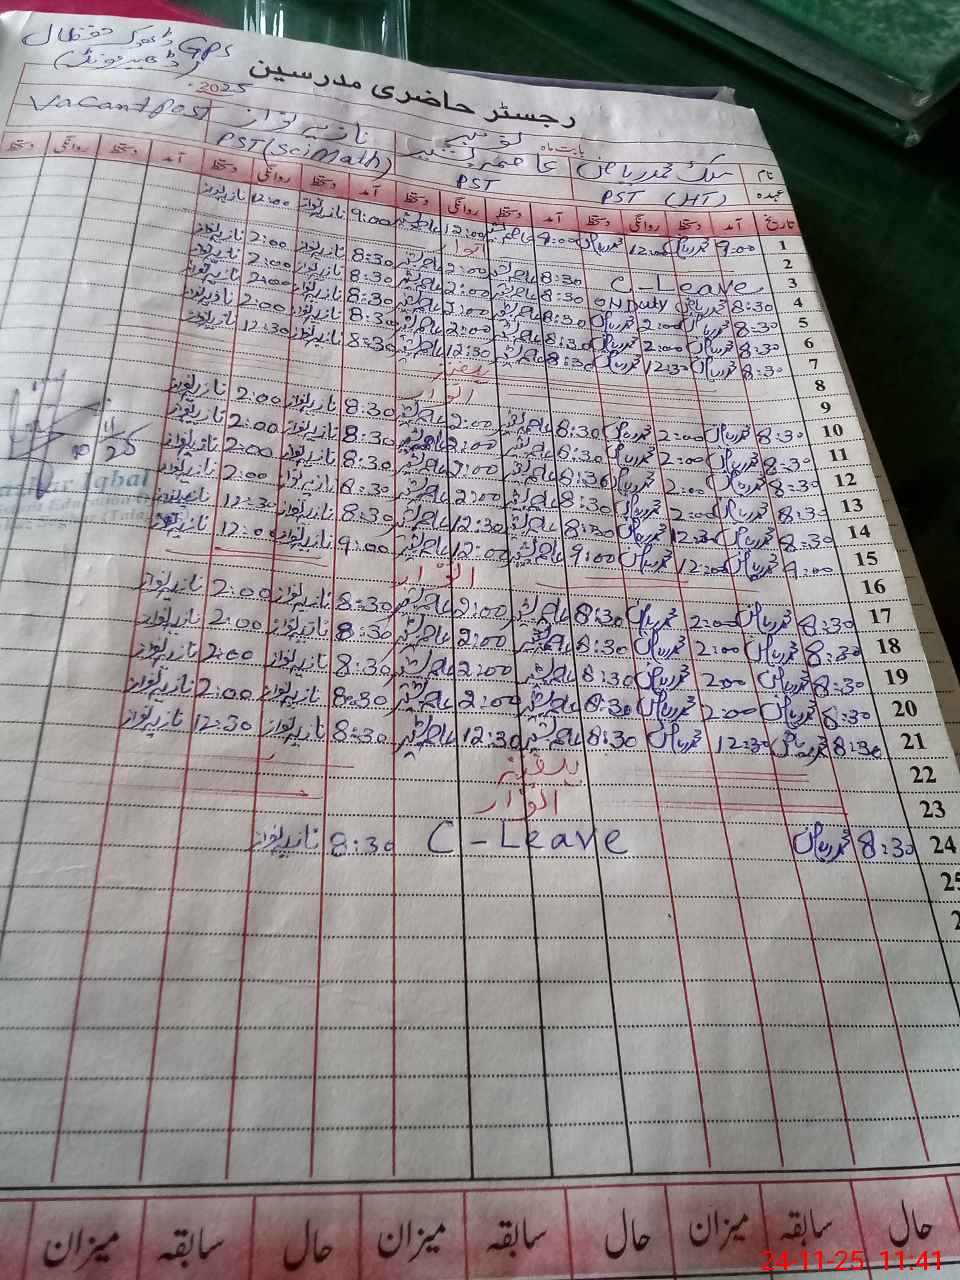 GPS ڈھوک حفظال
رجسٹر حاضری مدرسین
بابت ماہ نومبر 2025
نام ملک محمد ریاض عامر شہزاد نازیہ نواز Vacant Post
عہدہ PST (HT) PST PST (Sci Math)
تاریخ آمد دستخط روانگی دستخط آمد دستخط روانگی دستخط آمد دستخط روانگی دستخط آمد دستخط روانگی دستخط
1 9:00 محمد ریاض 12:00 محمد ریاض 9:00 12:00 9:00 نازیہ نواز 12:00 نازیہ نواز
2 اتوار
3 C-Leave 8:30 2:00 8:30 نازیہ نواز 2:00 نازیہ نواز
4 8:30 محمد ریاض ON Duty 8:30 2:00 8:30 نازیہ نواز 2:00 نازیہ نواز
5 8:30 محمد ریاض 2:00 محمد ریاض 8:30 2:00 8:30 نازیہ نواز 2:00 نازیہ نواز
6 8:30 محمد ریاض 2:00 محمد ریاض 8:30 2:00 8:30 نازیہ نواز 2:00 نازیہ نواز
7 8:30 محمد ریاض 12:30 محمد ریاض 8:30 12:30 8:30 نازیہ نواز 12:30 نازیہ نواز
8 ہفتہ
9 اتوار
10 8:30 محمد ریاض 2:00 محمد ریاض 8:30 2:00 8:30 نازیہ نواز 2:00 نازیہ نواز
11 8:30 محمد ریاض 2:00 محمد ریاض 8:30 2:00 8:30 نازیہ نواز 2:00 نازیہ نواز
12 8:30 محمد ریاض 2:00 محمد ریاض 8:30 2:00 8:30 نازیہ نواز 2:00 نازیہ نواز
13 8:30 محمد ریاض 2:00 محمد ریاض 8:30 2:00 8:30 نازیہ نواز 2:00 نازیہ نواز
14 8:30 محمد ریاض 12:30 محمد ریاض 8:30 12:30 8:30 نازیہ نواز 12:30 نازیہ نواز
15 9:00 محمد ریاض 12:00 محمد ریاض 9:00 12:00 9:00 نازیہ نواز 12:00 نازیہ نواز
16 اتوار
17 8:30 محمد ریاض 2:00 محمد ریاض 8:30 2:00 8:30 نازیہ نواز 2:00 نازیہ نواز
18 8:30 محمد ریاض 2:00 محمد ریاض 8:30 2:00 8:30 نازیہ نواز 2:00 نازیہ نواز
19 8:30 محمد ریاض 2:00 محمد ریاض 8:30 2:00 8:30 نازیہ نواز 2:00 نازیہ نواز
20 8:30 محمد ریاض 2:00 محمد ریاض 8:30 2:00 8:30 نازیہ نواز 2:00 نازیہ نواز
21 8:30 محمد ریاض 12:30 محمد ریاض 8:30 12:30 8:30 نازیہ نواز 12:30 نازیہ نواز
22 ہفتہ
23 اتوار
24 8:30 محمد ریاض C-Leave 8:30 نازیہ نواز
25
10/11/25
Iqbal
حال سابقہ میزان حال سابقہ میزان حال سابقہ میزان
24-11-25 11:41